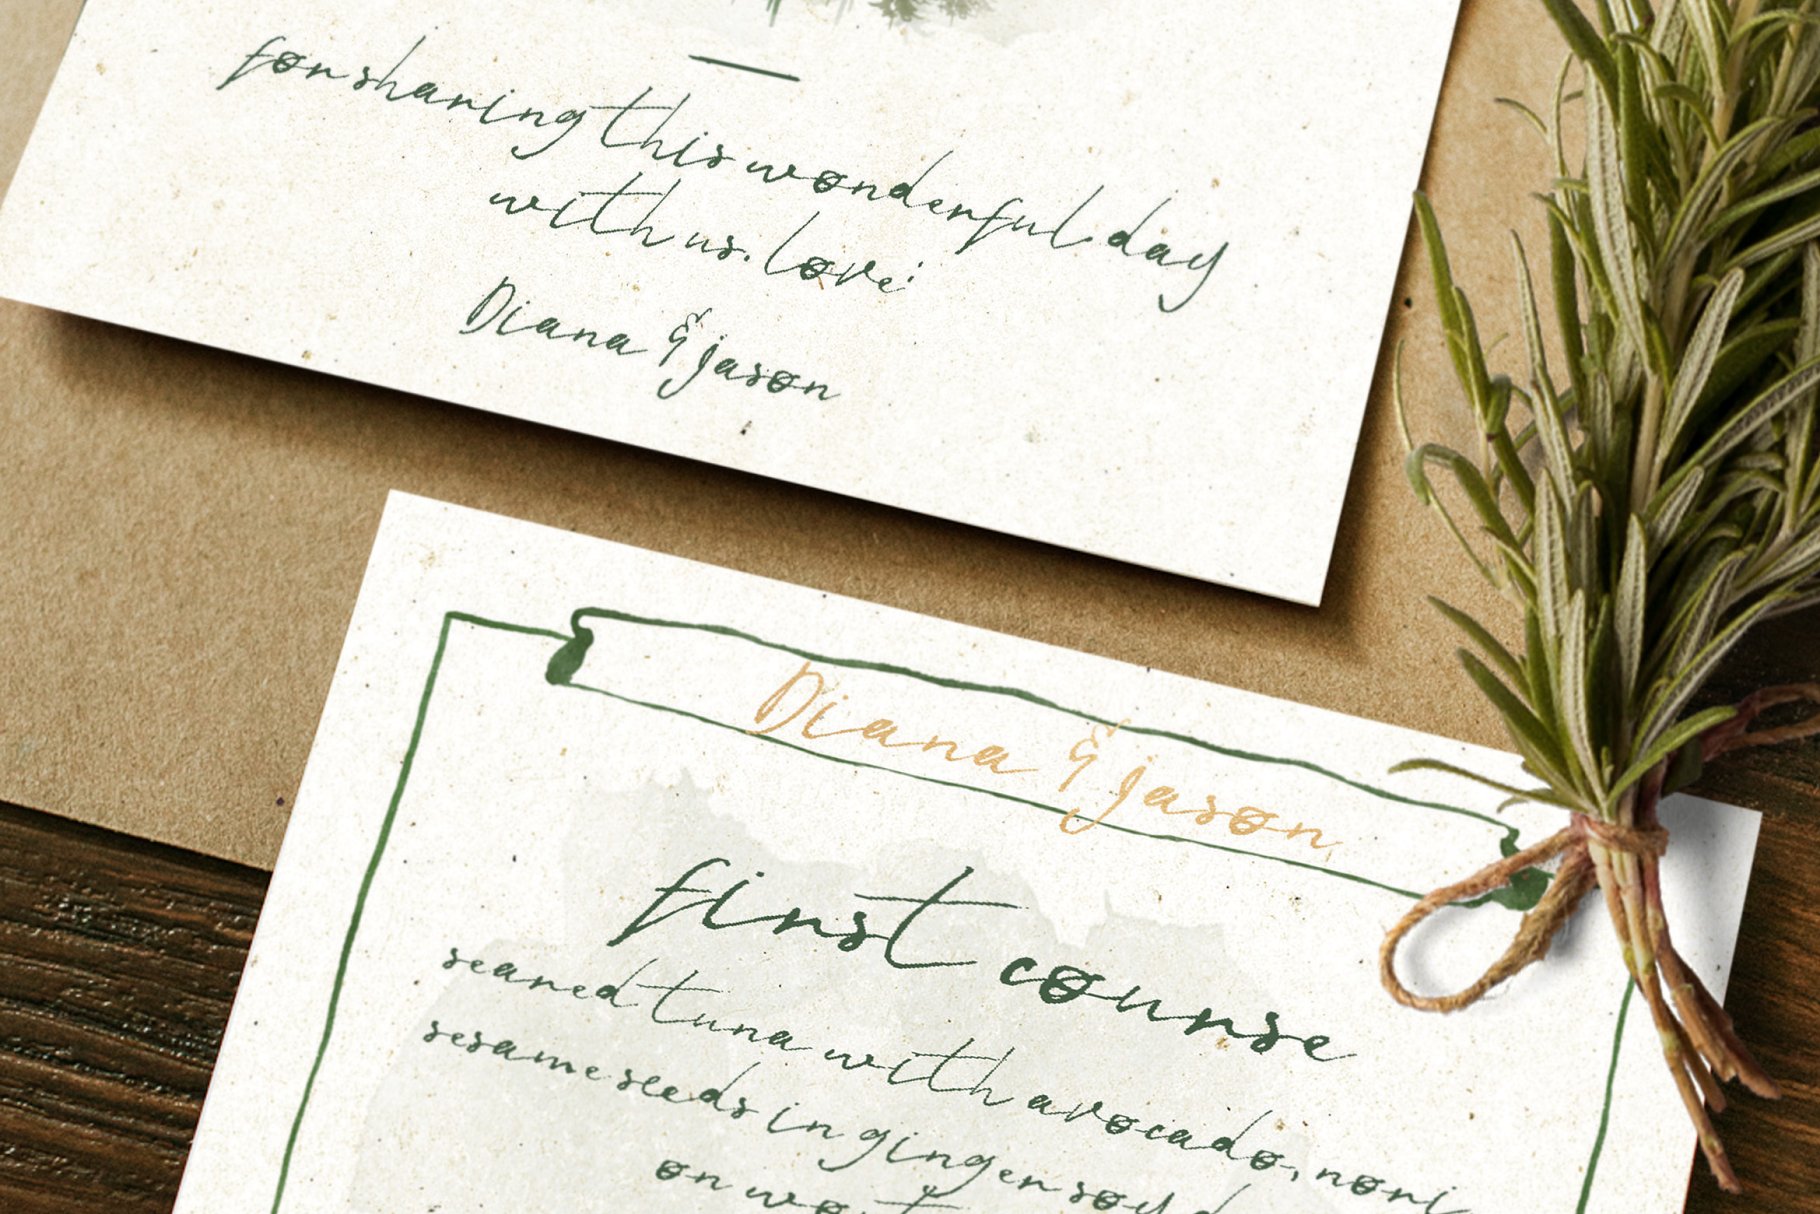 for sharing this wonderful day
with us. love:
Diana & jason
Diana & jason
first course
seared tuna with avocado, nori
sesame seeds in ginger soy d
on wont